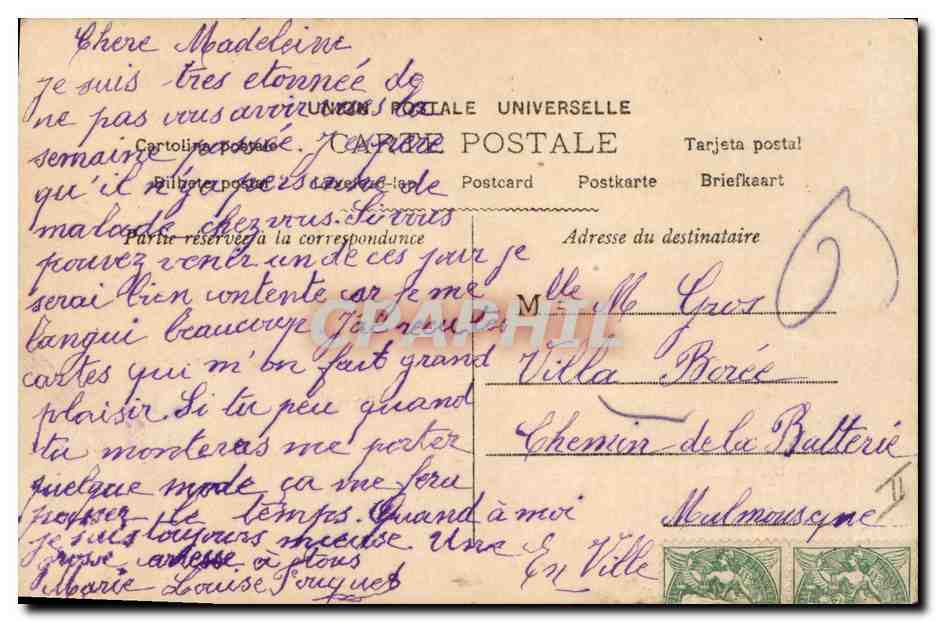 Chere Madeleine
je suis tres etonnée de
ne pas vous avoir vues la
semaine passé. J'espère
qu'il n'y a personne de
malade chez vous. Si vous
pouvez venir un de ces jour je
serai bien contente car je me
langui beaucoup J'ai recu tes
cartes qui m'on fait grand
plaisir. Si tu peu quand
tu monteras me porter
quelque mode ça me fera
passer le temps. Quand à moi
je suis toujours mieuse. Une
grosse à tous
Marie Louise Fouque
UNION POSTALE UNIVERSELLE
CARTE POSTALE
Cartolina postale
Tarjeta postal
Bilhete postal
Levelező-lap
Postcard
Postkarte
Briefkaart
Partie réservée à la correspondance
Adresse du destinataire
Mlle M Gros
Villa Borée
Chemin de la Batterie
Malmousque
En Ville
II
CPAPHIL